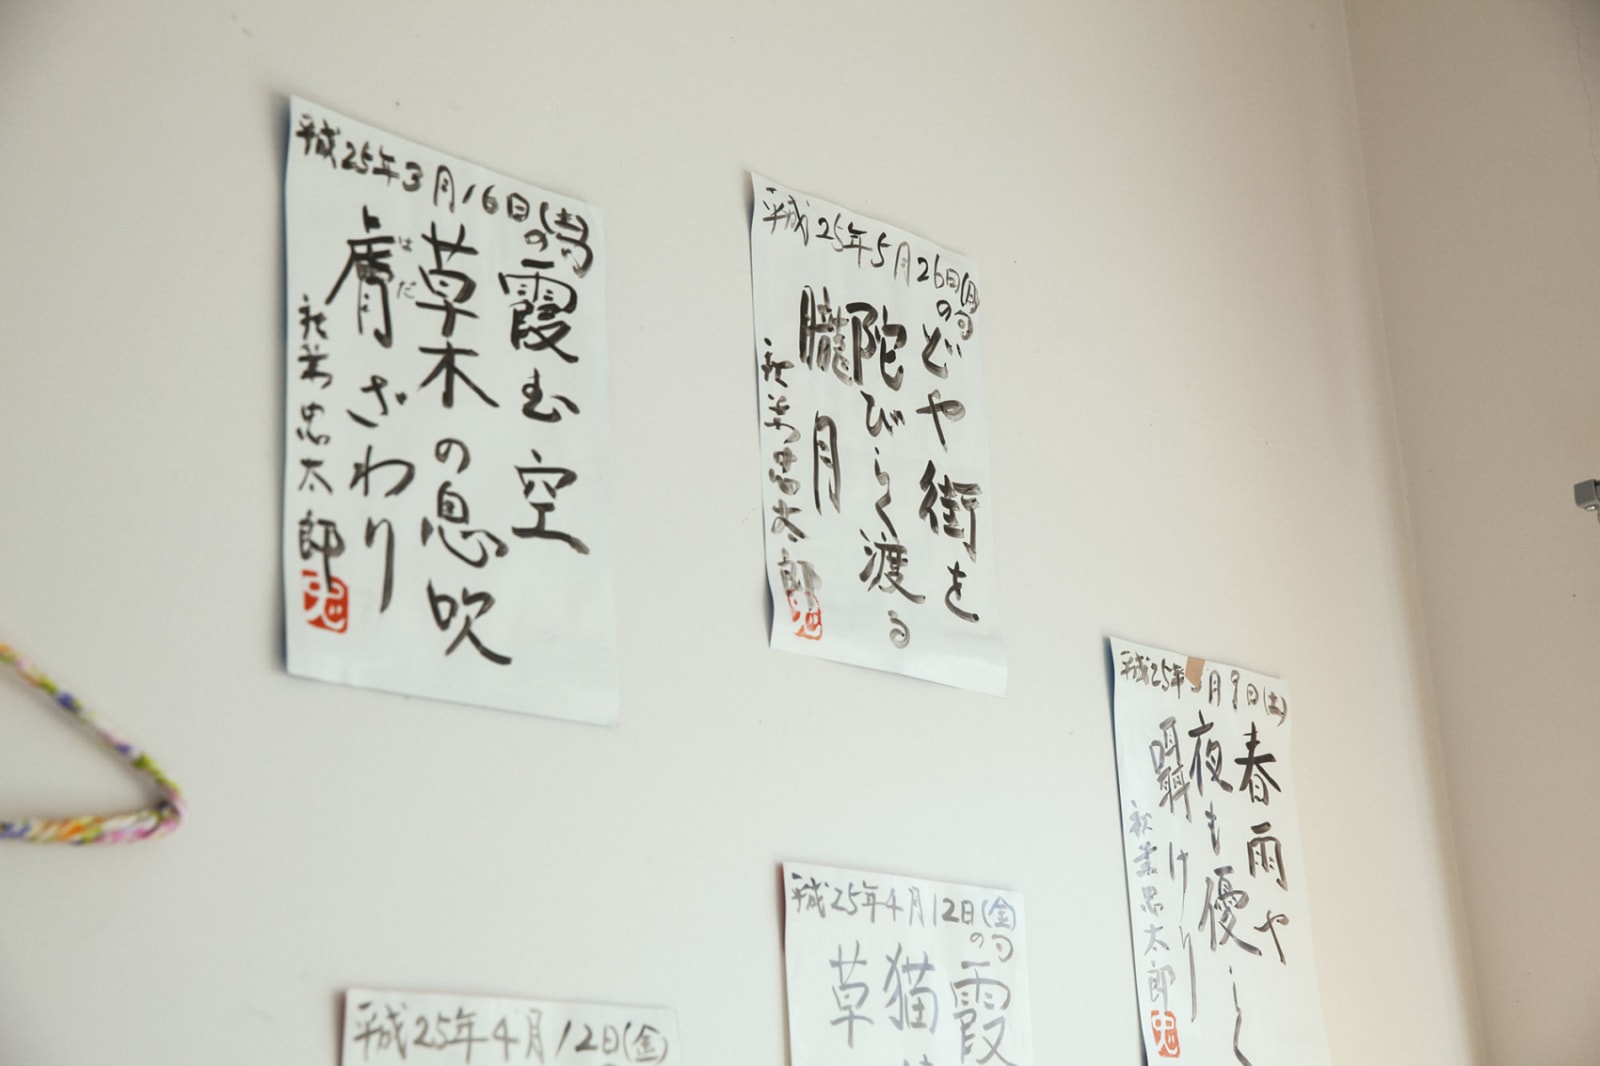 平成25年3月16日(土)
の句
霞む空
草木の息吹
膚ざわり
はだ
秋葉忠太郎
忠
平成25年5月26日(日)
の句
どや街を
陀びしく渡る
朧月
秋葉忠太郎
忠
平成25年 月9日(土)
春雨や
夜も優しく
囁けり
秋葉忠太郎
忠
平成25年4月12日(金)
の句
霞
猫
草
平成25年4月12日(金)